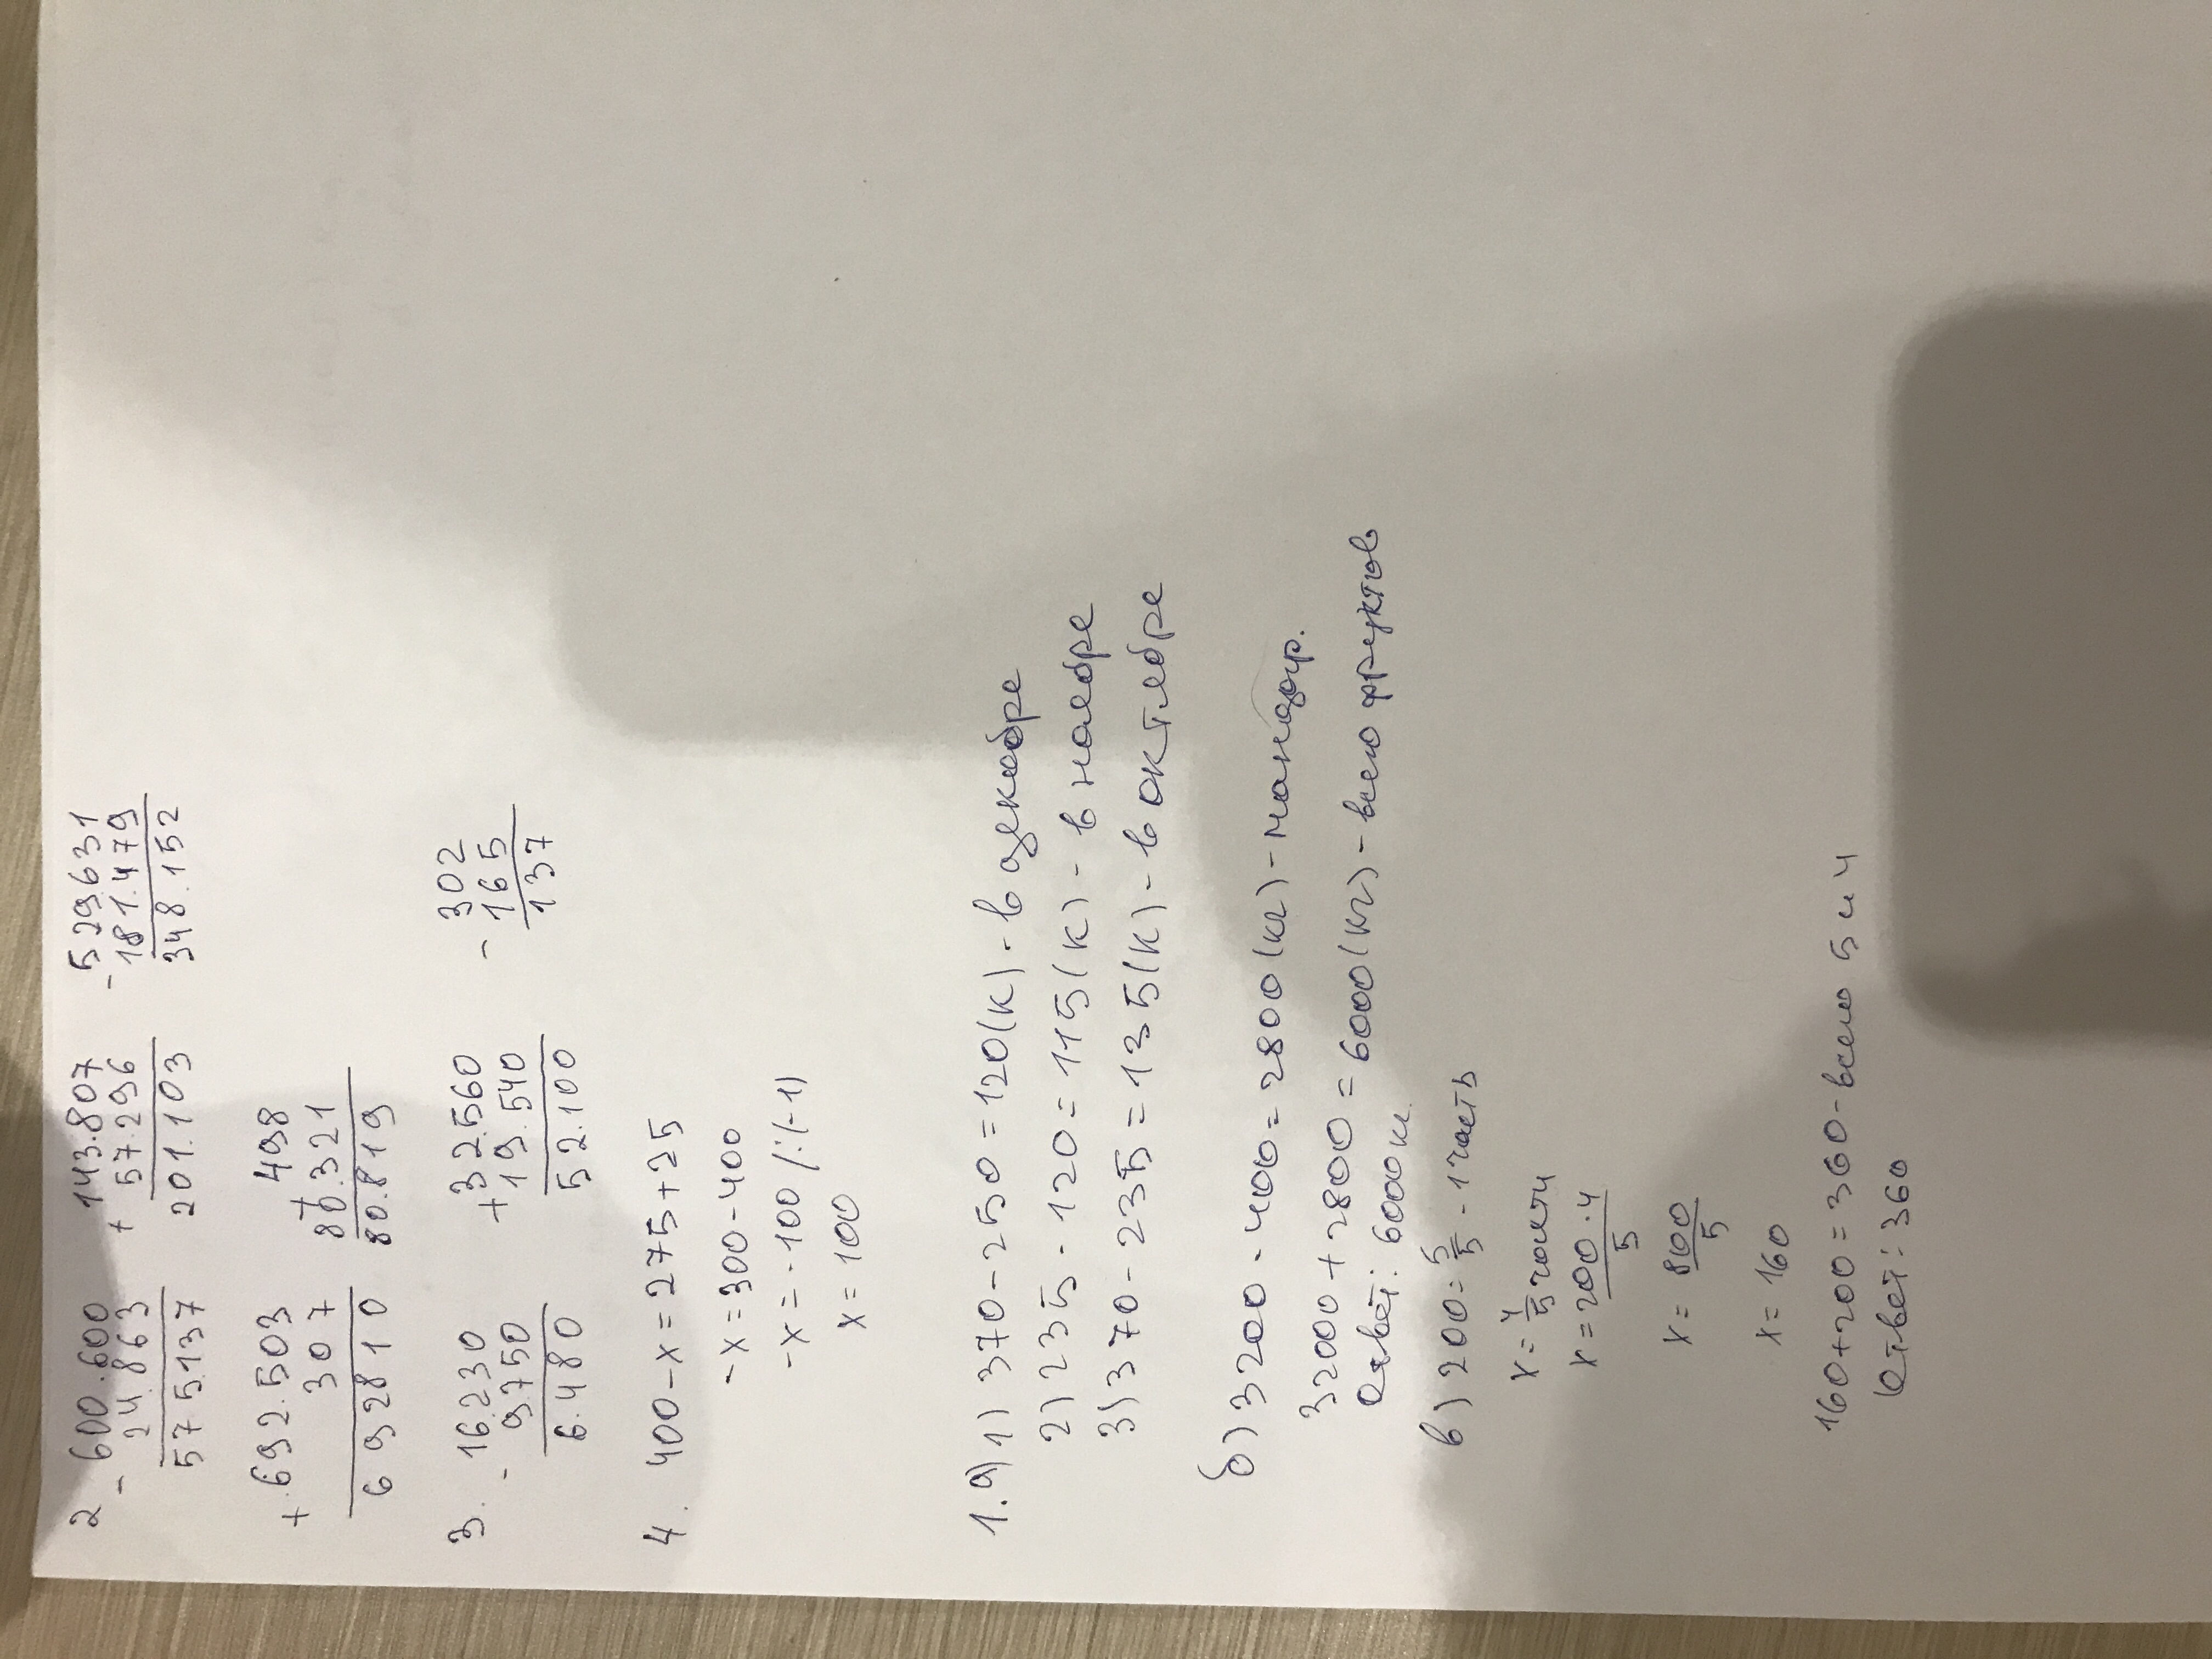 2 - 600.600 + 143.807 - 529631
24.863 57.296 181.479
575.137 201.103 348.152
+ 692.503 + 498
307 80.321
692810 80.819
3. - 16.230 + 32.560 - 302
9.750 19.540 165
6.480 52.100 137
4. 400 - x = 275 + 25
-x = 300 - 400
-x = -100 /:(-1)
x = 100
1. а) 1) 370 - 250 = 120 (к) - в декабре
2) 235 - 120 = 115 (к) - в ноябре
3) 370 - 235 = 135 (к) - в октябре
б) 3200 - 400 = 2800 (кг) - мандар.
32000 + 2800 = 6000 (кг) - всего фруктов
Ответ: 6000 кг.
в) 200 = 5/5 - 1 часть
x = 4/5 части
x = 200 · 4 / 5
x = 800 / 5
x = 160
160 + 200 = 360 - всего 5 и 4
Ответ: 360